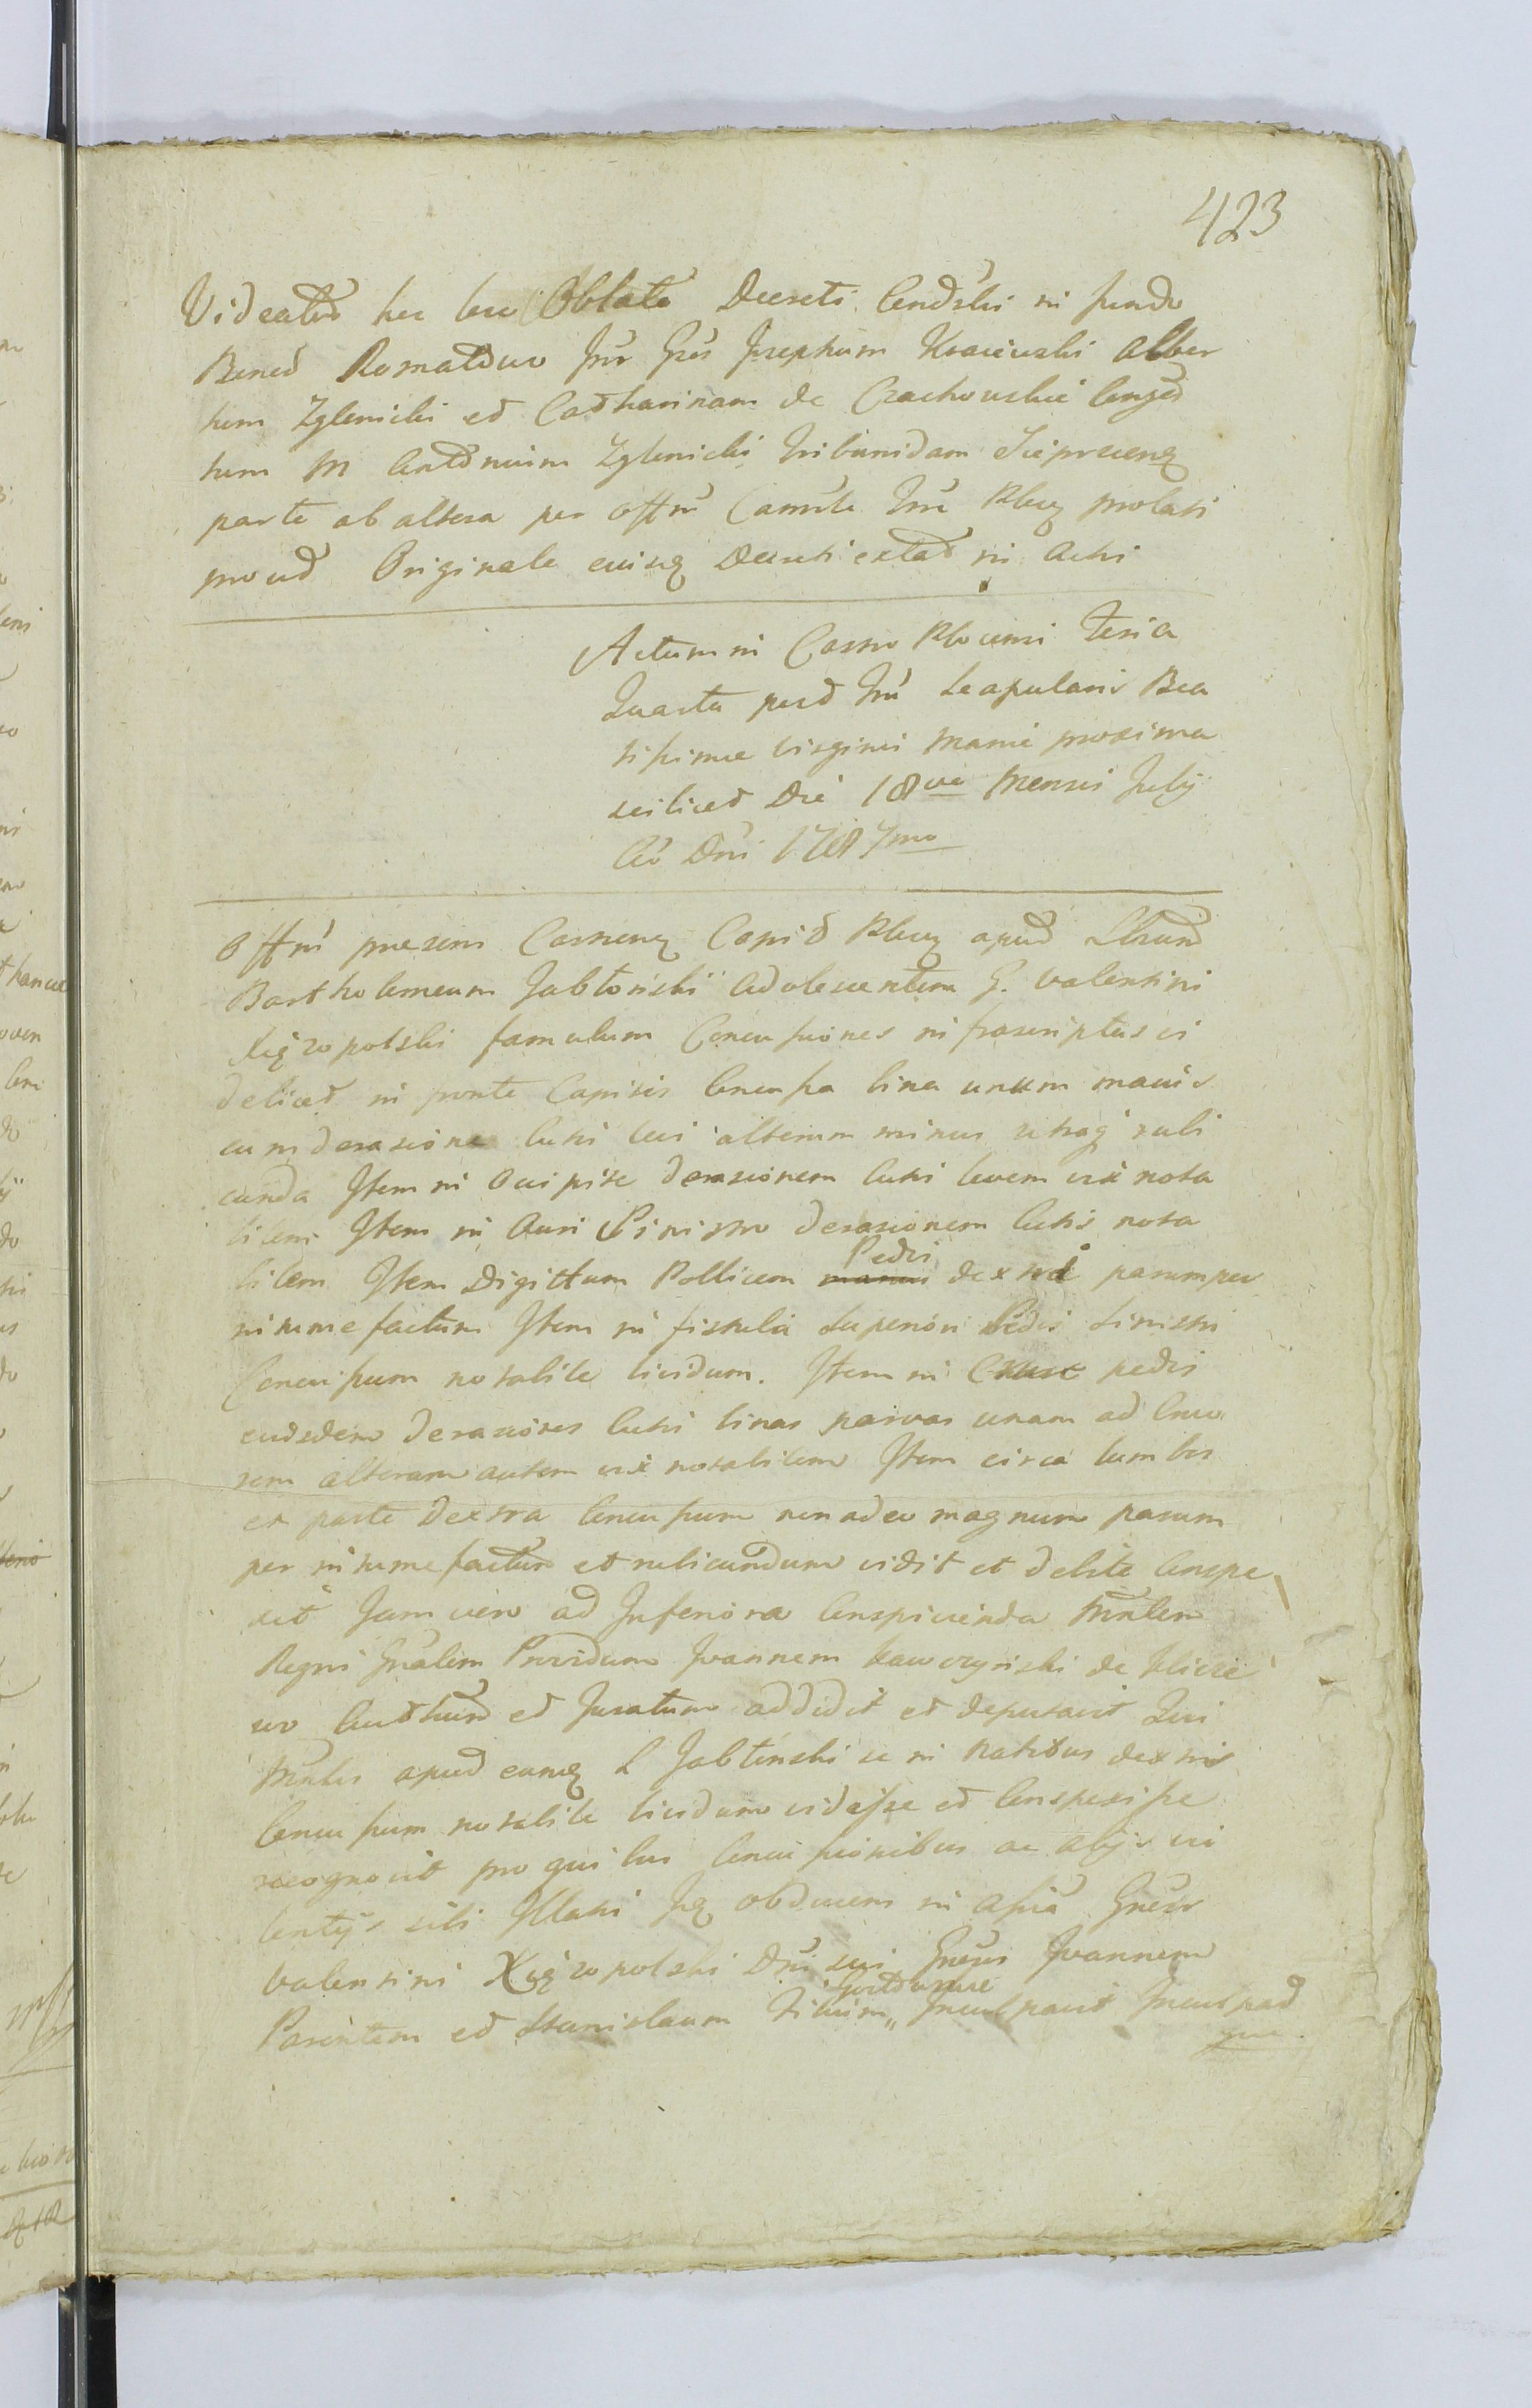 423
Videatur hec loco Oblata Decreti Condski in fundo
Bened Romaldus Inr Gres Josephum Krasiewski Alber
tum Zglenicki et Catharinam de Czachowskie Conjed
tum M Antonium Zglenicki Tribunidam
parte ab altera per Offm Camrle Plocq prolati
prout Originale eiusq Decreti extat in Actis
Actum in Castro Plocensi Feria
Quarta post Fm Scapularis Bea
tissimae Virginis Mariae proxima
scilicet Die 18va Mensis Julij
Ao Dni 1787mo
Offm praesens Castrensq Capit Plocq apud Lbrum
Bartholomeum Jabłoński adolescentem G. Valentini
Xięzopolski famulum Concussiones infrascriptas vi
delicet in fronte Capitis Concussa bina unum maius
cum derasione Cutis levi alterum minus utraq rubi
cunda Item in Occipite derasionem Cutis levem vix nota
bilem Item in Auri Sinistro derasionem Cutis nota
bilem Item Digittum Pollicem manus Pedis dextri parumper
intumefactum Item in fistula superiori Pedis Sinistri
Concussum notabile lividum. Item in Crure pedis
eiusdem derasiones Cutis binas parvas unam ad Cruo
rem alteram autem vix notabilem Item circa lumbos
ex parte dextra Concussum non adeo magnum parum
per intumefactum et rubicundum vidit et debite Conspe
xit Jam vero ad Inferiora Conspicienda Mnlem
Regni Gnalem Providum Joannem Kawczynski de
vo Authum et Juratum addidit et deputavit Qui
Mnlis apud eumq L Jabłonski se in natibus dextris
Concussum notabile lividum vidisse et Conspexisse
recognovit pro quibus Concussionibus ac alijs vio
lentijs sibi Illatis Jq obducens in assia Gnesi
Valentini Xięzopolski Dni sui Gnesos Joannem
Parentem et Stanislaum Filium „ Inculpavit Inculpat
que